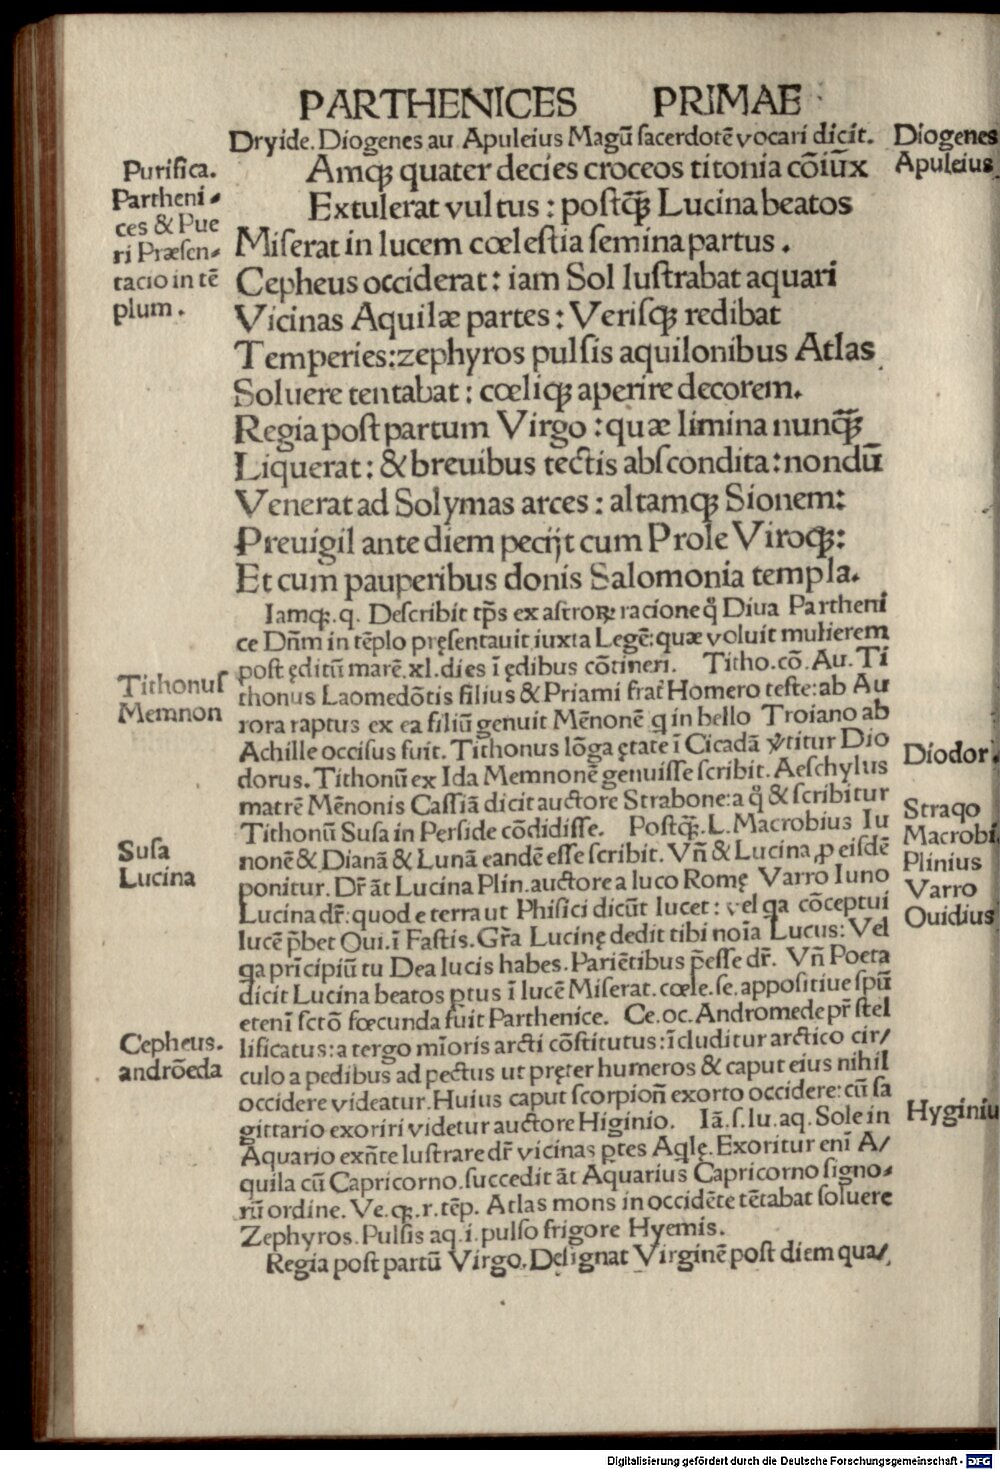 PARTHENICES PRIMAE
Dryide. Diogenes au Apuleius Magū ſacerdotē vocari dicit.
Diogenes
Apuleius
Purifica.
Partheni⸗
ces & Pue
ri Præſen⸗
tacio in tē
plum.
Amqꝫ quater decies croceos titonia cōiūx
Extulerat vultus : poſtqꝫ̄ Lucina beatos
Miſerat in lucem cœleſtia ſemina partus .
Cepheus occiderat : iam Sol luſtrabat aquari
Vicinas Aquilæ partes : Veriſqꝫ redibat
Temperies: zephyros pulſis aquilonibus Atlas
Soluere tentabat : cœliqꝫ aperire decorem.
Regia poſt partum Virgo : quæ limina nunqꝫ̄
Liquerat : & breuibus tectis abſcondita : nondū
Venerat ad Solymas arces : altamqꝫ Sionem :
Preuigil ante diem pecijt cum Prole Viroqꝫ :
Et cum pauperibus donis Salomonia templa.
Iamqꝫ. q. Deſcribit tp̄s ex aſtroꝝ racione qͦ Diua Partheni
ce Dn̄m in tēplo pręſentauit iuxta Legē: quæ voluit mulierem
poſt ęditū marē. xl. dies ī ędibus cōtineri. Titho. cō. Au. Ti
thonus Laomedōtis filius & Priami frat̄ Homero teſte: ab Au
rora raptus ex ea filiū genuit Mēnonē q in bello Troiano ab
Achille occiſus fuit. Tithonus lōga ętate ī Cicadā v̓titur Dio
dorus. Tithonū ex Ida Memnonē genuiſſe ſcribit. Aeſchylus
matrē Mēnonis Caſſiā dicit auctore Strabone: a qͦ & ſcribitur
Tithonū Suſa in Perſide cōdidiſſe. Poſtqꝫ̄. L. Macrobius Iu
nonē & Dianā & Lunā eandē eſſe ſcribit. Vn̄ & Lucina ꝓ eiſdē
ponitur. Dr̄ āt Lucina Plin. auctore a luco Romę Varro Iuno
Lucina dr̄: quod e terra ut Phiſici dicūt lucet : vel qa cōceptui
lucē p̄bet Oui. ī Faſtis. Gr̄a Lucinę dedit tibi noīa Lucus: Vel
qa prīcipiū tu Dea lucis habes. Pariētibus p̄eſſe dr̄. Vn̄ Poeta
dicit Lucina beatos ꝑtus ī lucē Miſerat. cœle. ſe. appoſitiue ſpū
etenī ſctō fœcunda fuit Parthenice. Ce. oc. Andromede pr̄ ſtel
lificatus: a tergo mīoris arcti cōſtitutus: īcluditur arctico cir/
culo a pedibus ad pectus ut pręter humeros & caput eius nihil
occidere videatur. Huius caput ſcorpion̄ exorto occidere: cū ſa
gittario exoriri videtur auctore Higinio. Iā. ſ. lu. aq. Sole in
Aquario exn̄te luſtrare dr̄ vicinas ꝑtes Aqlę. Exoritur enī A/
quila cū Capricorno. ſuccedit āt Aquarius Capricorno ſigno⸗
rū ordine. Ve. qꝫ. r. tēp. Atlas mons in occidēte tētabat ſoluere
Zephyros. Pulſis aq. i. pulſo frigore Hyemis.
Regia poſt partū Virgo. Deſignat Virginē poſt diem qua/
Tithonuſ
Memnon
Suſa
Lucina
Cepheus.
andrōeda
Diodor.
Straqo
Macrobi.
Plinius
Varro
Ouidius
Hyginiu
Digitalisierung gefördert durch die Deutsche Forschungsgemeinschaft - DFG